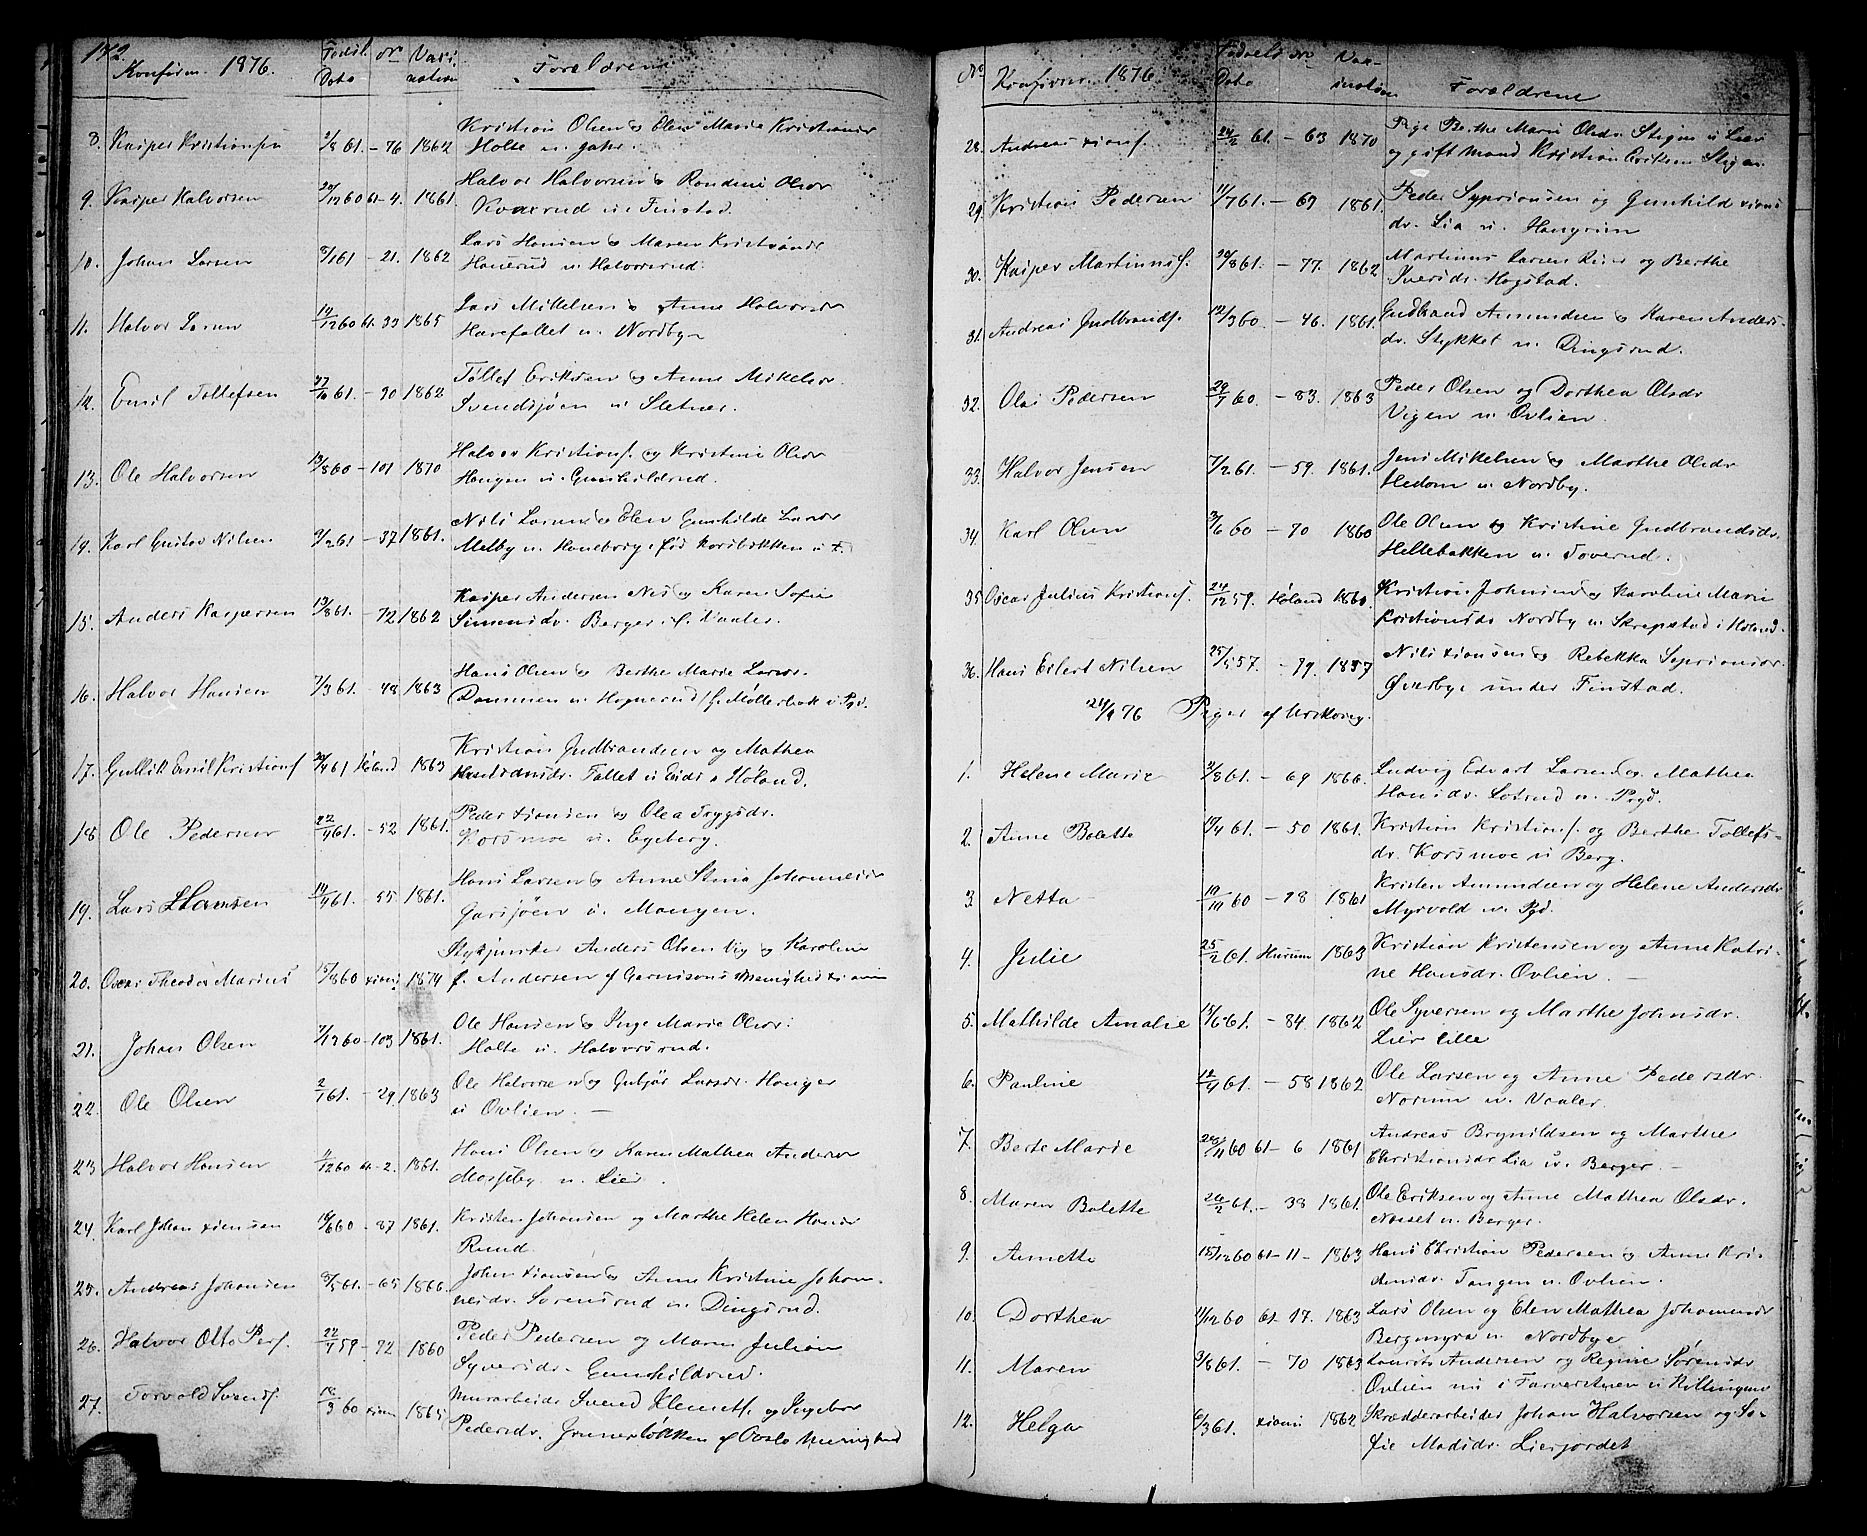 142.
Konfirm. 1876. Fødsl. Dato nr Vaxi nation Forældrene
8. Kasper Kristiansen 2/8 61. - 76 1862 Kristian Olsen og Elen Marie Kristiansdr
Holte u.
9. Kasper Halvorsen 20/12 60 61 - 4. 1861. Halvor Halvorsen og Rondine Olsdr
Kværud u. Finstad.
10. Johan Larsen 8/1 61 - 21. 1862 Lars Hansen og Maren Kristiansdr
Hauerud u. Halvorsrud.
11. Halvor Larsen 14/12 60 61. 33 1865 Lars Mikelsen og Anne Halvorsdr
Harefallet u. Nordby
12. Emil Tollefsen 61. - 90 1862 Tollef Eriksen og Anne Mikelsdr.
Svendsjøen u. Sletner.
13. Ole Halvorsen 13/8 60 - 101 1870 Halvor Kristiansf. og Kristine Olsdr
Haugen u. Gunhildrud.
14. Karl Gustav Nilsen 9/2 61 - 37 1861. Nils Larsen og Elen Gunhilde Larsdr
Melby u. Haneborg, fød Korsbakken u
15. Anders Kaspersen 13/8 61. - 72 1862 Kasper Andersen Nes og Karen Sofie
Simensdr. Berger f. Vaaler.
16. Halvor Hansen 7/3 61. - 48 1863 Hans Olsen og Berthe Marie Larsdr.
Dammen u. Hognerud
17. Gullik Emil Kristiansf 61 Høland 1863 Kristian Gudbrandsen og Mathea
Tallet u Eids i Høland.
18. Ole Pedersen 22/4 61. - 52 1861. Peder xiansen og Olea Trygsdr.
Korsmoe u. Egeberg.
19. Lars Hansen 14/4 61. - 55 1861. Hans Larsen og Anne Stina Johannesdr
Garsjøen u. Mangen.
20. Oscar Theodor Marius 15/8 60 xiania 1874 Stykjunker Anders Olsen Vig og Karoline
f. Andersen af Garnisons Menighed xiania
21. Johan Olsen 60 - 103 1861. Ole Hansen og Inge Marie Olsdr:
Holte u. Halvorsrud.
22. Ole Olsen 2/1 61. - 29. 1863 Ole Halvorsen og Gubjør Larsdr. Hanger
u Ovlien. -
23 Halvor Hansen 60 61 - 2. 1861. Hans Olsen og Karen Mathea Andersdr
Mosseby u. Lier.
24. Karl Johan xiansen 60 - 87 1861. Kristen Johansen og Marthe Helen Hansdr
Ruud.
25. Andreas Johansen 8/5 61. - 65 1866. Johan xiansen og Anne Kristine Johan-
nesdr. Sørensrud u. Dingsrud.
26. Halvor Otto Pers. 22/7 59 - 72 1860 Peder Pedersen og Maren Juliane
Syversdr. Gunhildrud.
27. Torvald Svendsf. 18/3 60 xiania 1865 Murarbeider Svend Klemetsf. og Ingebor
Pedersdr. Grunerløkken af Oslo Menighed
No Konfirm. 1876. Fødsels Dato nr Vax- ination Forældrene
28. Andreas xiansf. 24/2 61 - 63 1870 Pige Berthe Marie Olsdr. Stigen u Lier
og gift Mand Kristian Eriksen Stigen
29. Kristian Pedersen 11/7 61. - 69 1861. Peder Syprionsen og Gunhild xians
dr. Lia u. Haugrim
30. Kasper Martinusf. 8 61. - 77. 1862 Martinus Larsen Lier og Berthe
Iversdr. Hogstad.
31. Andreas Gudbrandsf. 12/3 60. - 46. 1861. Gudbrand Amundsen og Karen Anders-
dr. Stykket u. Dingsrud.
32. Olai Pedersen 29/7 60. - 83. 1863 Peder Olsen og Dorthea Olsdr
Vigen u. Ovlien
33. Halvor Jensen 7/2 61. - 59. 1861. Jens Mikelsen og Marthe Olsdr
Hedom u. Nordby.
34. Karl Olsen 60 - 70 1860 Ole Olsen og Kristine Gudbrandsdr.
Hellebakken u. Toverud.
35 Oscar Julius Kristiansf. 24/12 59. Høland 1860 Kristian Johnsen og Karoline Marie
Kristiansdr Nordby u. Skrepstad i Høland.
36. Hans Eilert Nilsen 25/5 57. - 79. 1857 Nils xiansen og Rebekka Syprionsdr.
Øverbye under Finstad.
24/9 76 Piger af Urskoug.
1. Helene Marie 2/8 61. - 69 1866. Ludvig Edvart Larsen og Mathea
Hansdr. Lotrud u. Pgd.
2. Anne Bolette 17/4 61. - 50 1861. Kristian Kristiansf. og Berthe Tollefs-
dr. Korsmoe u Berg.
3. Netta 60 - 98 1861 Kristen Amundsen og Helene Andersdr
Myrvold u. Pgd.
4. Julie 25/2 61. Hurum 1863 Kristian Kristensen og Anne Katri-
ne Hansdr. Ovlien. -
5. Mathilde Amalie 15/6 61. - 84. 1862 Ole Syversen og Marthe Johnsdr.
Lier lille
6. Pauline 12/4 61. - 58 1862. Ole Larsen og Anne Pedersdr.
Norum u. Vaaler.
7. Berte Marie 60 61 - 6 1861 Andreas Brynildsen og Marthe
Christiansdr Lia u. Berger. -
8. Maren Bolette 26/2 61. - 38 1861. Ole Eriksen og Anne Mathea Olsdr.
Nasset u. Berger.
9. Annette 15/12 60 61 - 11 - 1863 Hans Christian Pedersen og Anne Kri-
stensdr. Tangen u. Ovlien.
10. Dorthea 12 60 61 17. 1863 Lars Olsen og Elen Mathea Johannesdr
Bergmyra u. Nordbye
11. Maren 3/8 61. - 70 1863 Laurits Andersen og Regine Sørensdr
Ovlien nu i Farverstuen u Killingmo
12. Helga 6/3 61. xiania 1862 Skrædderarbeider Johan Halvorsen og So-
fie Madsdr. Lierfordet